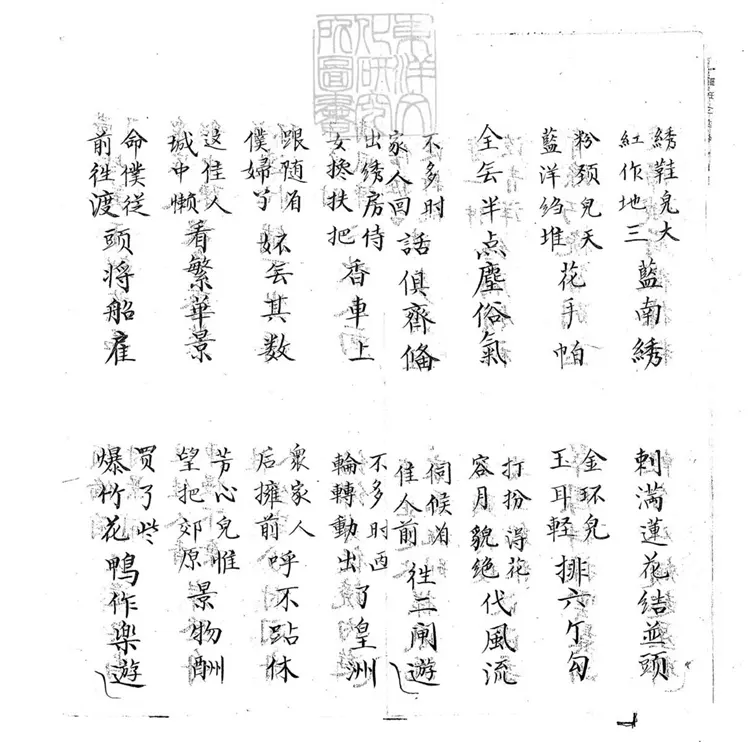 東洋文化研究所圖書
綉鞋兒大紅作地三藍南綉
刺滿蓮花結並頭
粉頸兒天藍洋绉堆花手帕
金环兒玉耳輕排六个勾
全无半点塵俗氣
打扮得花容月貌絶代風流
不多时家人回話俱齊俻
伺候着佳人前徃二闸遊
出綉房侍女搀扶把香車上
不多时両輪轉動出了皇洲
跟随着僕婦丫妳无其数
衆家人后擁前呼不跕休
这佳人城中懒看繁華景
芳心兒惟望把郊原景物酬
命僕従前徃渡頭将船雇
買了些爆竹花鴨作楽遊